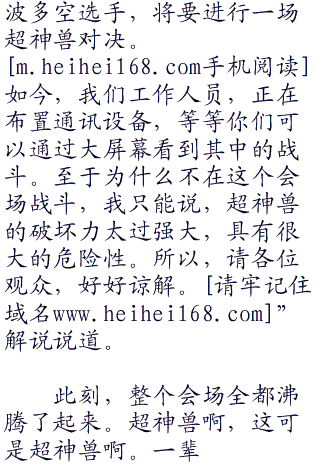 波多空选手，将要进行一场
超神兽对决。
[m.heihei168.com手机阅读]
如今，我们工作人员，正在
布置通讯设备，等等你们可
以通过大屏幕看到其中的战
斗。至于为什么不在这个会
场战斗，我只能说，超神兽
的破坏力太过强大，具有很
大的危险性。所以，请各位
观众，好好谅解。[请牢记住
域名www.heihei168.com]”
解说说道。
此刻，整个会场全都沸
腾了起来。超神兽啊，这可
是超神兽啊。一辈